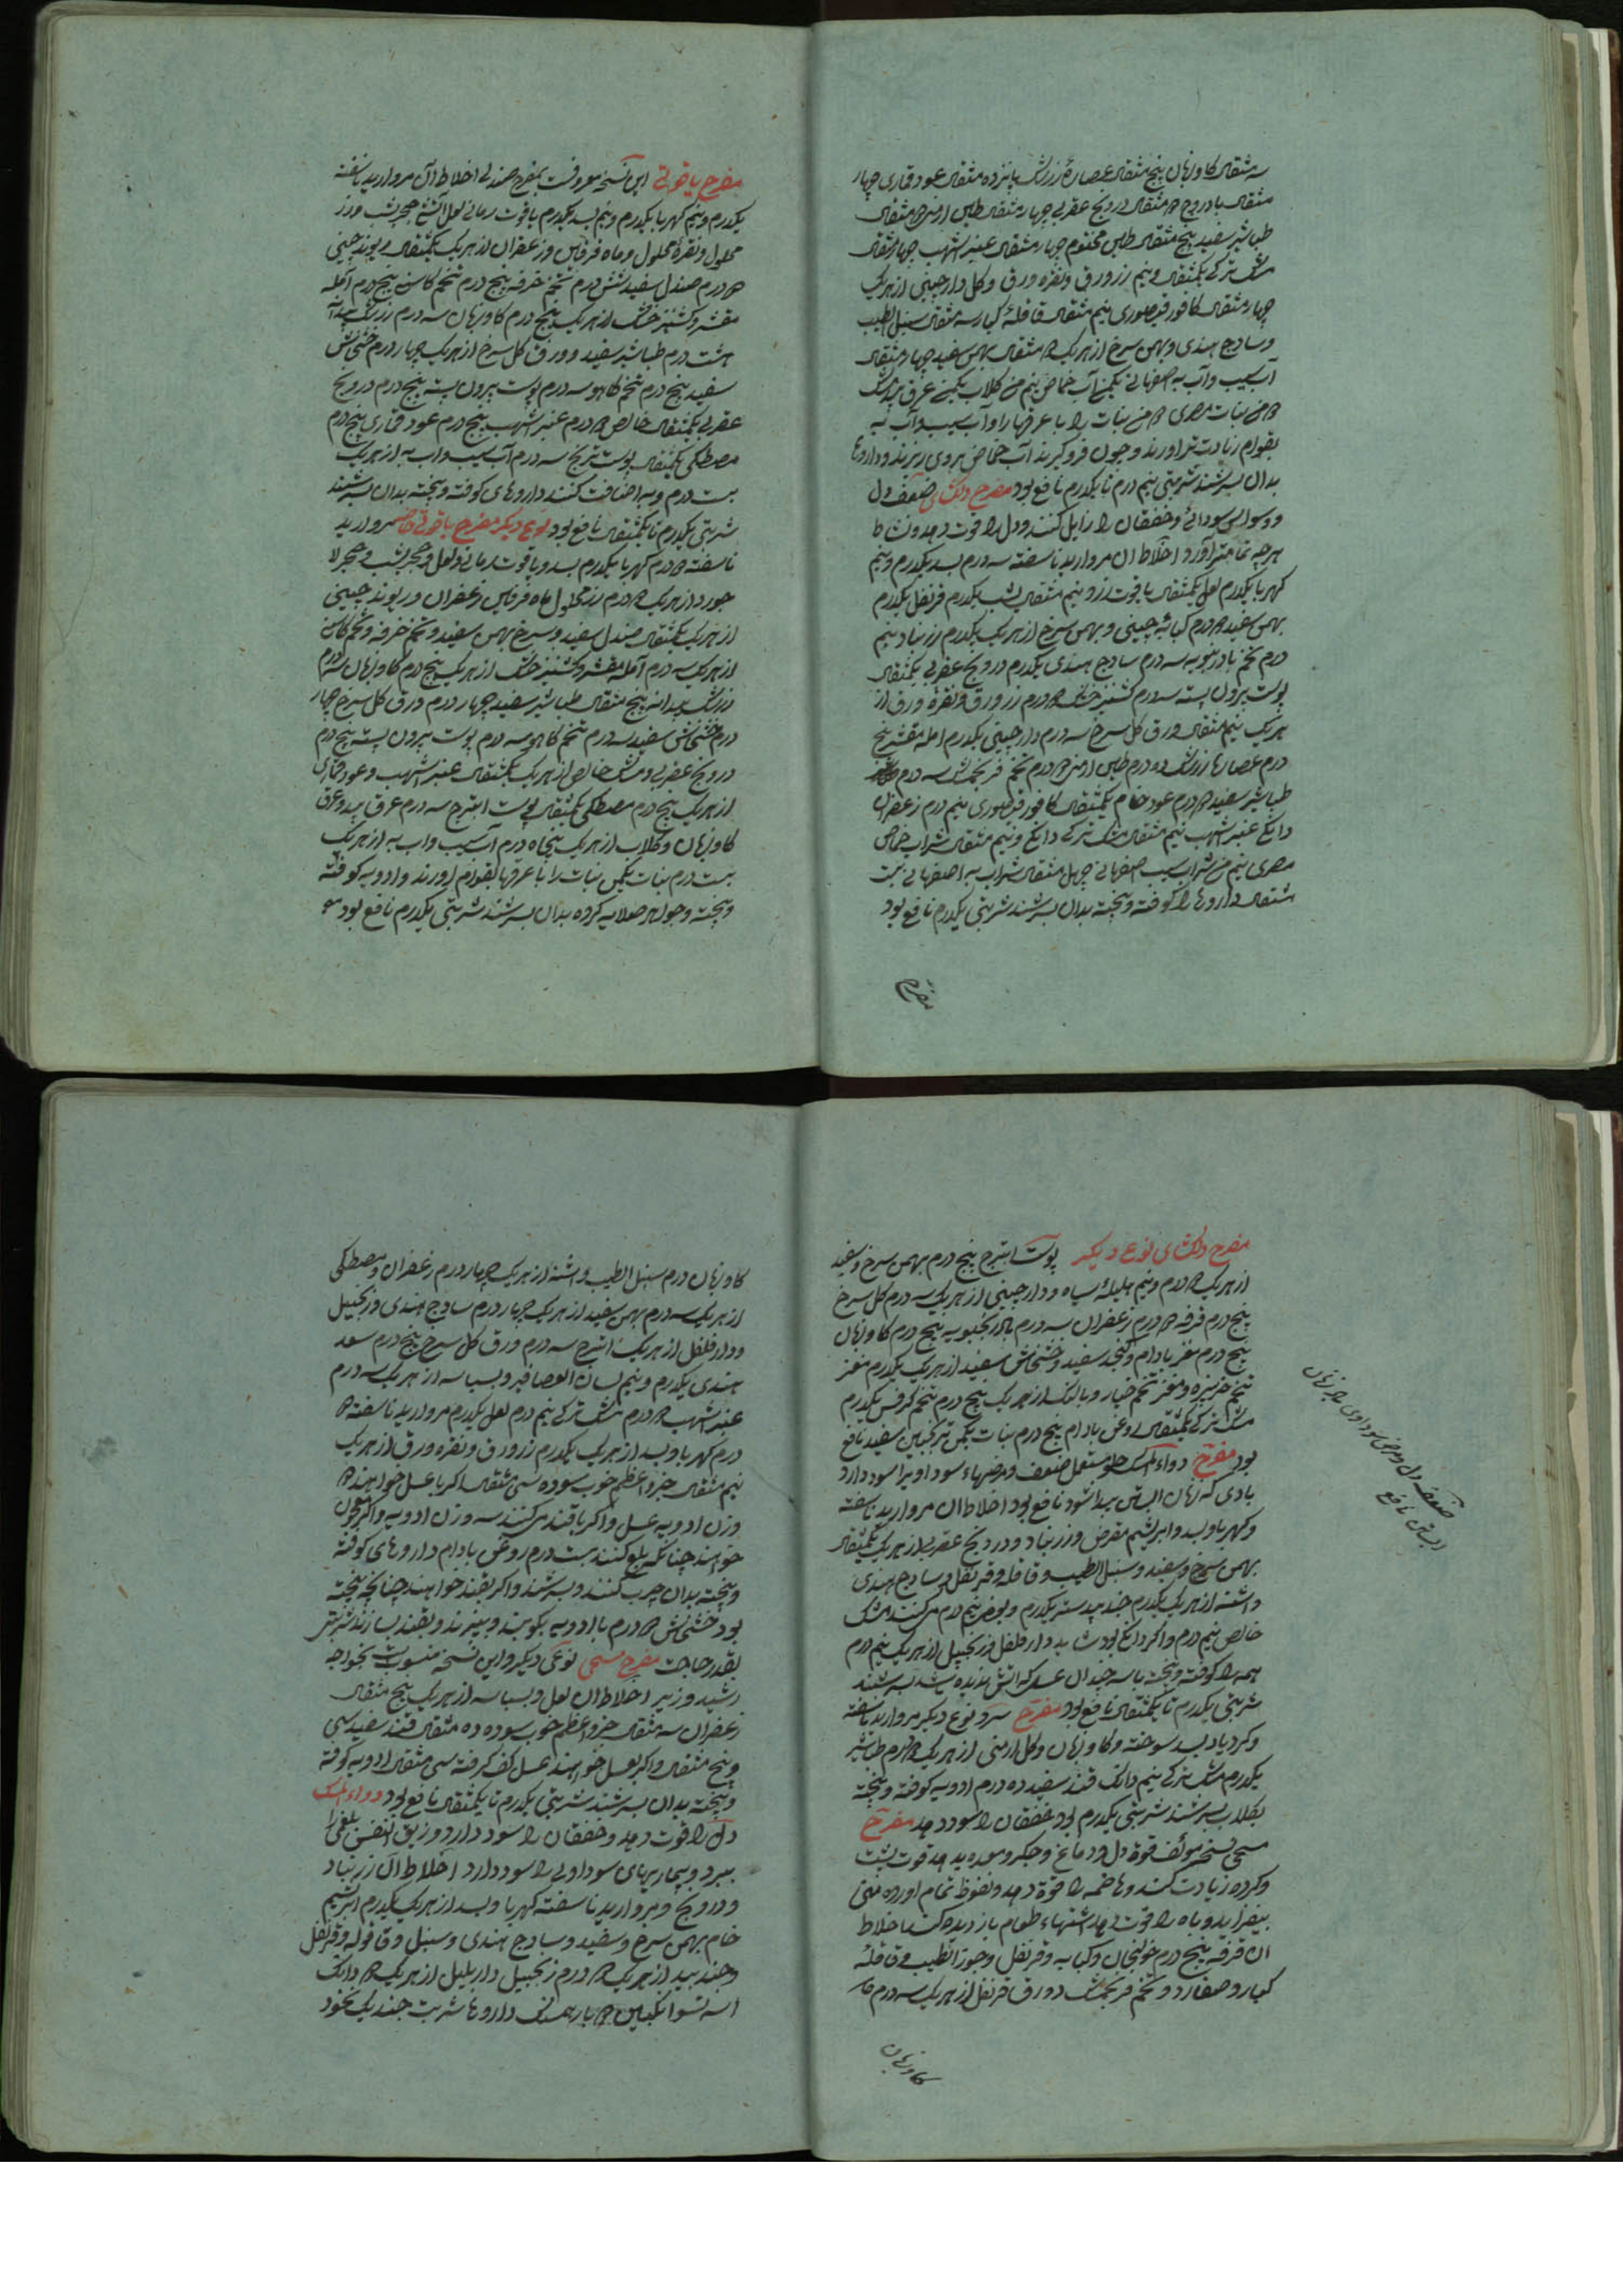 سه مثقال کاوزبان پنج مثقال عصاره زرشک پانزده مثقال عود قماری چهار
مثقال بادروج مثقال درونج عقربی چهار مثقال طین ارمنی مثقال
طباشیر سفید پنج مثقال طین مختوم چهار مثقال عنبر اشهب چهار مثقال
مشک ترکی یکمثقال و نیم زر ورق و نقره ورق و کل دارچینی از هر یک
چهار مثقال کافور قیصوری نیم مثقال قاقله کبار سه مثقال سنبل الطیب
و سادج هندی و بهمن سرخ از هر یک مثقال بهمن سفید چهار مثقال
آب سیب و آب به اصفهانی یکمن آب حماض نیم من کلاب یکمن عرق بیدمشک
من نبات مصری من نبات را با عرقها و آب سیب و آب به
بقوام آورند و چون فروکیرند آب حماض بروی ریزند و داروها
بدان بسرشند شربتی نیم درم تا یکدرم نافع بود مفرح دلکشای ضعف دل
و وسواس سودائی و خفقان را زایل کند و دل را قوت دهد و نشاط
هرچه تمامتر آورد اخلاط آن مروارید ناسفته سه درم بسد یکدرم و نیم
کهربا یکدرم لعل یکمثقال یاقوت زرد نیم مثقال یشب یکدرم قرنفل یکدرم
بهمن سفید درم کبابه چینی و بهمن سرخ از هر یک یکدرم زرنباد نیم
درم تخم بادرنبویه سه درم سادج هندی یکدرم درونج عقربی یکمثقال
پوست بیرون پسته سه درم کشنیز خشک درم زر ورق و نقره ورق از
هر یک نیم مثقال ورق کل سرخ سه درم دارچینی یکدرم آمله مقشر پنج
درم عصاره زرشک ده درم طین ارمنی درم تخم فرنجمشک سه درم
طباشیر سفید درم عود خام یکمثقال کافور قیصوری نیم درم زعفران
دانکی عنبر اشهب نیم مثقال مشک ترکی دانکی و نیم مثقال شراب حماض
مصری نیم من شراب سیب اصفهانی چهل مثقال شراب به اصفهانی بیست
مثقال داروها را کوفته و بیخته بدان بسرشند شربتی یکدرم نافع بود
مفرح
مفرح یاقوتی این نسخه معروفست بمفرح صندلی اخلاط آن مروارید ناسفته
یکدرم و نیم کهربا یکدرم و نیم بسد یکدرم یاقوت رمانی لعل حجر یشب و زر
محلول و نقره محلول و ماه فرفین و زعفران از هر یک یکمثقال ریوند چینی
درم صندل سفید شش درم تخم خرفه پنج درم تخم کاسنی پنج درم آمله
مقشر و کشنیز خشک از هر یک پنج درم کاوزبان سه درم زرشک بیدانه
هشت درم طباشیر سفید و ورق کل سرخ از هر یک چهار درم خشخاش
سفید پنج درم تخم کاهو سه درم پوست بیرون پسته پنج درم درونج
عقربی یکمثقال خالص درم عنبر اشهب پنج درم عود قماری پنج درم
مصطکی یکمثقال پوست ترنج سه درم آب سیب و آب به از هر یک
بیست درم و به اضافت کنند داروهای کوفته و بیخته بدان بسرشند
شربتی یکدرم تا یکمثقال نافع بود نوع دیکر مفرح یاقوتی خاص مروارید
ناسفته درم کهربا یکدرم بسد و یاقوت رمانی و لعل و حجر یشب و حجر لا
جورد از هر یک درم زر محلول ماه فرفین زعفران و ریوند چینی
از هر یک یکمثقال صندل سفید و سرخ بهمن سفید و تخم خرفه و تخم کاسنی
از هر یک سه درم آمله مقشر و کشنیز خشک از هر یک پنج درم کاوزبان سه درم
زرشک بیدانه پنج مثقال طباشیر سفید چهار درم ورق کل سرخ چهار
درم خشخاش سفید سه درم تخم کاهو سه درم پوست بیرون پسته پنج درم
درونج عقربی و مشک خالص از هر یک یکمثقال عنبر اشهب و عود قماری
از هر یک پنج درم مصطکی یکمثقال پوست اترج سه درم عرق بید و عرق
کاوزبان و کلاب از هر یک پنجاه درم آب سیب و آب به از هر یک
بیست درم نبات یکمن نبات را با عرقها بقوام آورند و ادویه کوفته
و بیخته و جواهر صلایه کرده بدان بسرشند شربتی یکدرم نافع بود
مفرح دلکشای نوع دیکر پوست اترج پنج درم بهمن سرخ و سفید
از هر یک درم و نیم هلیله سیاه و دارچینی از هر یک سه درم کل سرخ
پنج درم قرفه درم زعفران سه درم بادرنجبویه پنج درم کاوزبان
پنج درم مغز بادام و کنجد سفید و خشخاش سفید از هر یک یکدرم مغز
تخم خربزه و مغز تخم خیار و بالنک از هر یک پنج درم تخم کرفس یکدرم
مشک ترکی یکمثقال روغن بادام پنج درم نبات یکمن ترنجبین سفید نافع
بود مفرح دواء المسک حلو مستعمل ضعف و مرضهاء سوداویرا سود دارد
بادی که زنان آبستن پیدا شود نافع بود اخلاط آن مروارید ناسفته
و کهربا و بسد و ابریشم مقرض و زرنباد و درونج عقربی از هر یک یکمثقال
بهمن سرخ و سفید و سنبل الطیب و قاقله و قرنفل و سادج هندی
و اشنه از هر یک یکدرم جندبیدستر یکدرم نیم درم مشک
خالص نیم درم و اکر دانکی بود شاید دارفلفل و زنجبیل از هر یک نیم درم
همه را کوفته و بیخته با سه چندان عسل که آتش ندیده باشد بسرشند
شربتی یکدرم تا یکمثقال نافع بود مفرح سرد نوع دیکر مروارید ناسفته
و کردیا بسد سوخته و کاوزبان و کل ارمنی از هر یک درم طباشیر
یکدرم مشک ترکی نیم دانک قند سفید ده درم ادویه کوفته و بیخته
بکلاب بسرشند شربتی یکدرم بود خفقان را سود دهد مفرح
مسیحی نسخه مؤلف قوة دل و دماغ و جکر و معده بدهد قوت پشت
و کرده زیادت کند و هاضمه را قوة دهد و نعوظ تمام آورد منی
بیفزاید و باه را قوت دهد اشتهاء طعام باز دیده کند اخلاط
آن قرفه پنج درم خولنجان و کبابه و قرنفل و جوز الطیب و قاقله
کبار و صغار و تخم فرنجمشک و ورق قرنفل از هر یک سه درم
کاوزبان
ضعف دل و مرض سوداوی باد زنان
آبستن نافع
کاوزبان درم سنبل الطیب و اشنه از هر یک چهار درم زعفران و مصطکی
از هر یک سه درم بهمن سفید از هر یک چهار درم سادج هندی و زنجبیل
و دارفلفل از هر یک اترج سه درم ورق کل سرخ پنج درم سعد
هندی یکدرم و نیم لسان العصافیر و بسباسه از هر یک سه درم
عنبر اشهب درم مشک ترکی نیم درم لعل یکدرم مروارید ناسفته
درم کهربا و بسد از هر یک یکدرم زر ورق و نقره ورق از هر یک
نیم مثقال جزو اعظم خوب سوده سی مثقال اکر با عسل خواهند
وزن ادویه عسل و اکر با قند کنند سه وزن ادویه و اکر معجون
خواهند چنانکه بلع کنند بیست درم روغن بادام داروهای کوفته
و بیخته بدان چرب کنند و بسرشند و اکر بقند خواهند چنانچه پخته
بود خشخاش درم با ادویه بکوبند و بپزند و بقند بسازند شربتی
بقدر حاجت مفرح مسیحی نوعی دیکر و این نسخه منسوبست بخواجه
رشید وزیر اخلاط آن لعل و بسباسه از هر یک پنج مثقال
زعفران سه مثقال جزو اعظم خوب سوده ده مثقال قند سفید سی
و پنج مثقال و اکر بعسل خواهند عسل کف کرفته سی مثقال ادویه کوفته
و بیخته بدان بسرشند شربتی یکدرم تا یکمثقال نافع بود دواء المسک
دل را قوت دهد و خفقان را سود دارد و ضیق النفس بلغمی را
ببرد و بیماریهای سوداوی را سود دارد اخلاط آن زرنباد
و درونج و مروارید ناسفته کهربا و بسد از هر یک یکدرم ابریشم
خام بهمن سرخ و سفید و سادج هندی و سنبل و قاقوله و قرنفل
و جندبید از هر یک درم زنجبیل دارپلپل از هر یک دانک
انکبین بار همسنک داروها شربت چند یک نخود